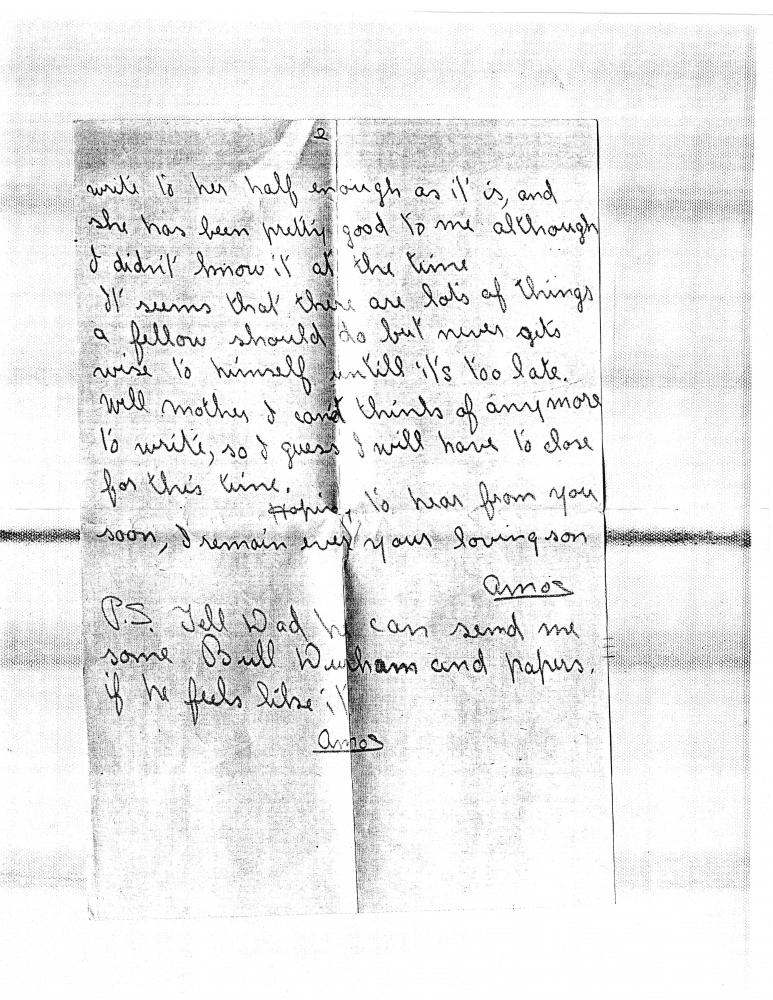 2
write to her half enough as it is, and
she has been pretty good to me although
I didn't know it at the time
It seems that there are lots of things
a fellow should do but never gets
wise to himself untill it's too late.
Well mother I can't think of any more
to write, so I guess I will have to close
for this time.
Hoping to hear from you
soon, I remain ever your loving son
Amos
P.S. Tell Dad he can send me
some Bull Durham and papers.
if he feels like it
Amos